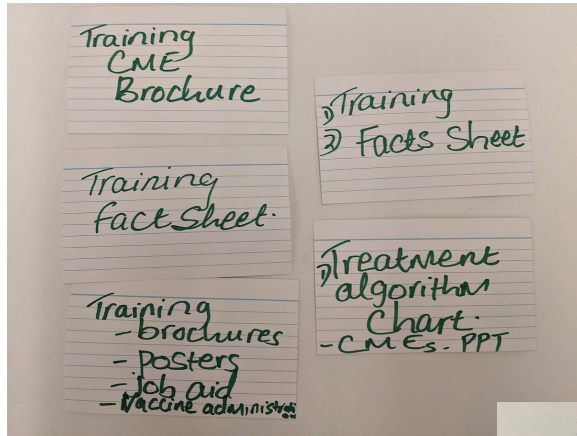 Training
CME
Brochure
Training
fact Sheet.
Training
- brochures
- posters
- job aid
- Vaccine administration
1) Training
2) Facts Sheet
1) Treatment
algorithm
Chart.
- CMEs - PPT